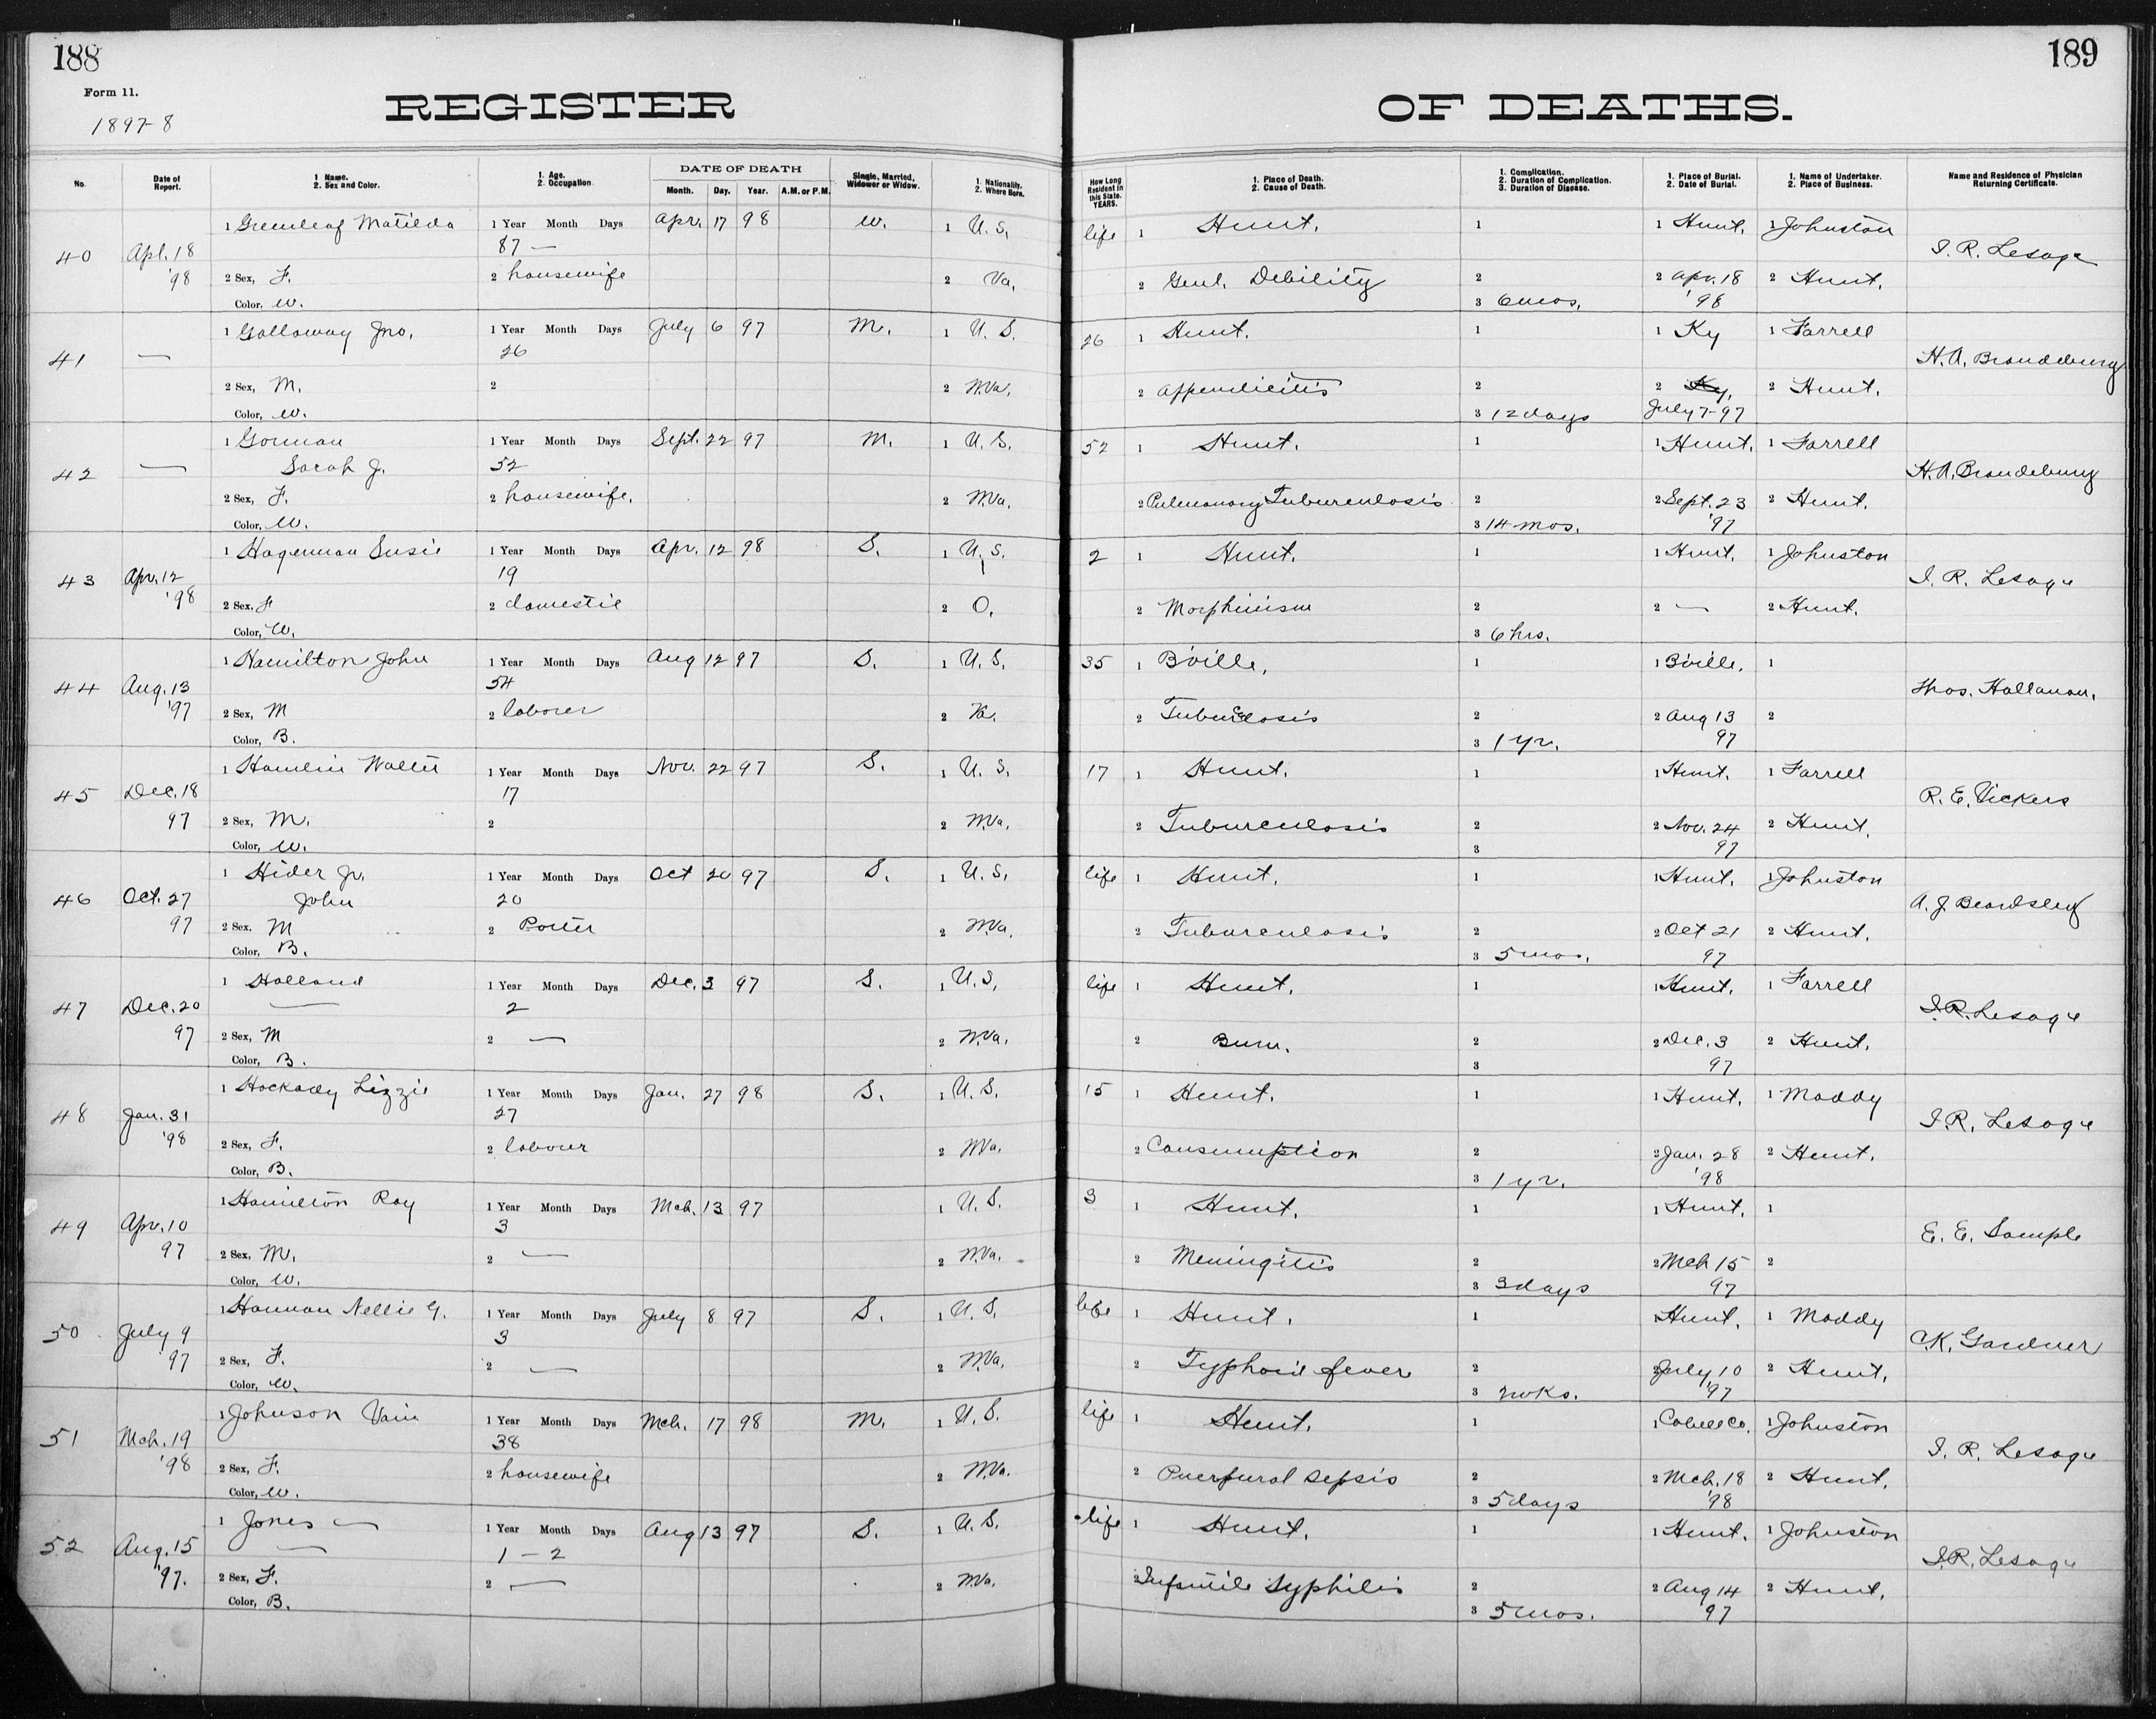 188
189
Form 11.
1897-8
REGISTER OF DEATHS.
No. Date of Report. 1 Name. 2. Sex and Color. 1. Age. 2. Occupation. DATE OF DEATH Month. Day. Year. A.M. or P.M. Single, Married, Widower or Widow. 1. Nationality. 2. Where Born. How Long Resident in this State. YEARS. 1. Place of Death. 2. Cause of Death. 1. Complication. 2. Duration of Complication. 3. Duration of Disease. 1. Place of Burial. 2. Date of Burial. 1. Name of Undertaker. 2. Place of Business. Name and Residence of Physician Returning Certificate.
1 Greenleaf Matilda 1 Year Month Days Apr. 17 98 W. 1 U.S. life 1 Hunt. 1 1 Hunt. 1 Johnston
40 Apl. 18 87 — I. R. Lesage
'98 2 Sex, F. 2 housewife 2 Va. 2 Genl. Debility 2 2 Apr. 18 2 Hunt.
Color, W. 3 6 mos. '98
1 Galloway Jno. 1 Year Month Days July 6 97 M. 1 U.S. 26 1 Hunt. 1 1 Ky 1 Farrell
41 — 26 H.A. Brandebury
2 Sex, M. 2 2 W.Va. 2 Appendicitis 2 2 Ky. 2 Hunt.
Color, W. 3 12 days July 7-97
1 Gorman 1 Year Month Days Sept. 22 97 M. 1 U.S. 52 1 Hunt. 1 1 Hunt. 1 Farrell
42 — Sarah J. 52 H.A. Brandebury
2 Sex, F. 2 housewife. 2 W.Va. 2 Pulmonary Tuburculosis 2 2 Sept. 23 2 Hunt.
Color, W. 3 14 mos. '97
1 Hagerman Susie 1 Year Month Days Apr. 12 98 S. 1 U.S. 2 1 Hunt. 1 1 Hunt. 1 Johnston
43 Apr. 12 19 I. R. Lesage
'98 2 Sex, F 2 domestic 2 O. 2 Morphinism 2 2 — 2 Hunt.
Color, W. 3 6 hrs.
1 Hamilton John 1 Year Month Days Aug 12 97 S. 1 U.S. 35 1 B'ville. 1 1 B'ville. 1
44 Aug. 13 54 Thos. Hallanan.
'97 2 Sex, M 2 laborer 2 Va. 2 Tuberculosis 2 2 Aug 13 2
Color, B. 3 1 yr. 97
1 Hamlin Walter 1 Year Month Days Nov. 22 97 S. 1 U.S. 17 1 Hunt. 1 1 Hunt. 1 Farrell
45 Dec. 18 17 R. E. Vickers
97 2 Sex, M. 2 2 W.Va. 2 Tuburculosis 2 2 Nov. 24 2 Hunt.
Color, W. 3 97
1 Hider Jr. 1 Year Month Days Oct 20 97 S. 1 U.S. life 1 Hunt. 1 1 Hunt. 1 Johnston
46 Oct. 27 John 20 A. J. Beardsley
97 2 Sex, M 2 Porter 2 W.Va. 2 Tuburculosis 2 2 Oct 21 2 Hunt.
Color, B. 3 5 mos. 97
1 Holland 1 Year Month Days Dec. 3 97 S. 1 U.S. life 1 Hunt. 1 1 Hunt. 1 Farrell
47 Dec. 20 — 2 I.R. Lesage
97 2 Sex, M 2 — 2 W.Va. 2 Burn. 2 2 Dec. 3 2 Hunt.
Color, B. 3 97
1 Hockady Lizzie 1 Year Month Days Jan. 27 98 S. 1 U.S. 15 1 Hunt. 1 1 Hunt. 1 Maddy
48 Jan. 31 27 I.R. Lesage
'98 2 Sex, F. 2 labourer 2 W.Va. 2 Consumption 2 2 Jan. 28 2 Hunt.
Color, B. 3 1 yr. '98
1 Hamilton Ray 1 Year Month Days Mch. 13 97 1 U.S. 3 1 Hunt. 1 1 Hunt. 1
49 Apr. 10 3 E. E. Sample
97 2 Sex, M. 2 — 2 W.Va. 2 Meningitis 2 2 Mch 15 2
Color, W. 3 3 days 97
1 Hannan Nellie G. 1 Year Month Days July 8 97 S. 1 U.S. life 1 Hunt. 1 1 Hunt. 1 Maddy
50 July 9 3 C.K. Gardner
97 2 Sex, F. 2 — 2 W.Va. 2 Typhoid fever 2 2 July 10 2 Hunt.
Color, W. 3 2 wks. '97
1 Johnson Vain 1 Year Month Days Mch. 17 98 M. 1 U.S. life 1 Hunt. 1 1 Cabell Co. 1 Johnston
51 Mch. 19 38 I. R. Lesage
'98 2 Sex, F. 2 housewife 2 W.Va. 2 Puerpural sepsis 2 2 Mch. 18 2 Hunt.
Color, W. 3 5 days '98
1 Jones — 1 Year Month Days Aug 13 97 S. 1 U.S. life 1 Hunt. 1 1 Hunt. 1 Johnston
52 Aug. 15 — 1 — 2 I.R. Lesage
'97. 2 Sex, F. 2 — 2 W.Va. 2 Infantile Syphilis 2 2 Aug 14 2 Hunt.
Color, B. 3 5 mos. 97